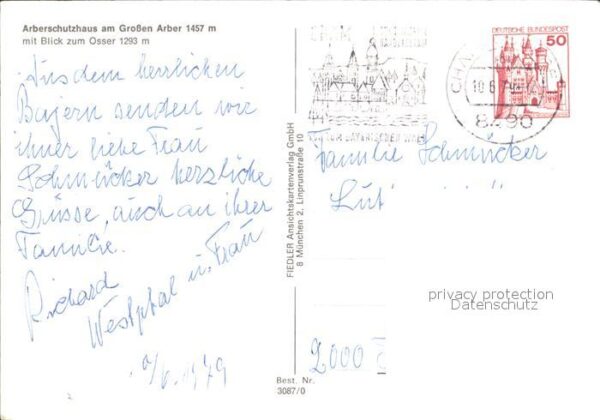 Arberschutzhaus am Großen Arber 1457 m
mit Blick zum Osser 1293 m
Aus dem herrlichen
Bayern senden wie
ihner liebe Frau
Schmücker herzliche
Grüsse, auch an ihrer
Familie.
Richard
Westphal u. Frau
1979
FIEDLER Ansichtskartenverlag GmbH
8 München 2, Linprunstraße 10
CHAM
DEUTSCHE BUNDESPOST
50
10.6.79
8490
Familie Schmücker
2000
privacy protection
Datenschutz
Best. Nr.
3087/0